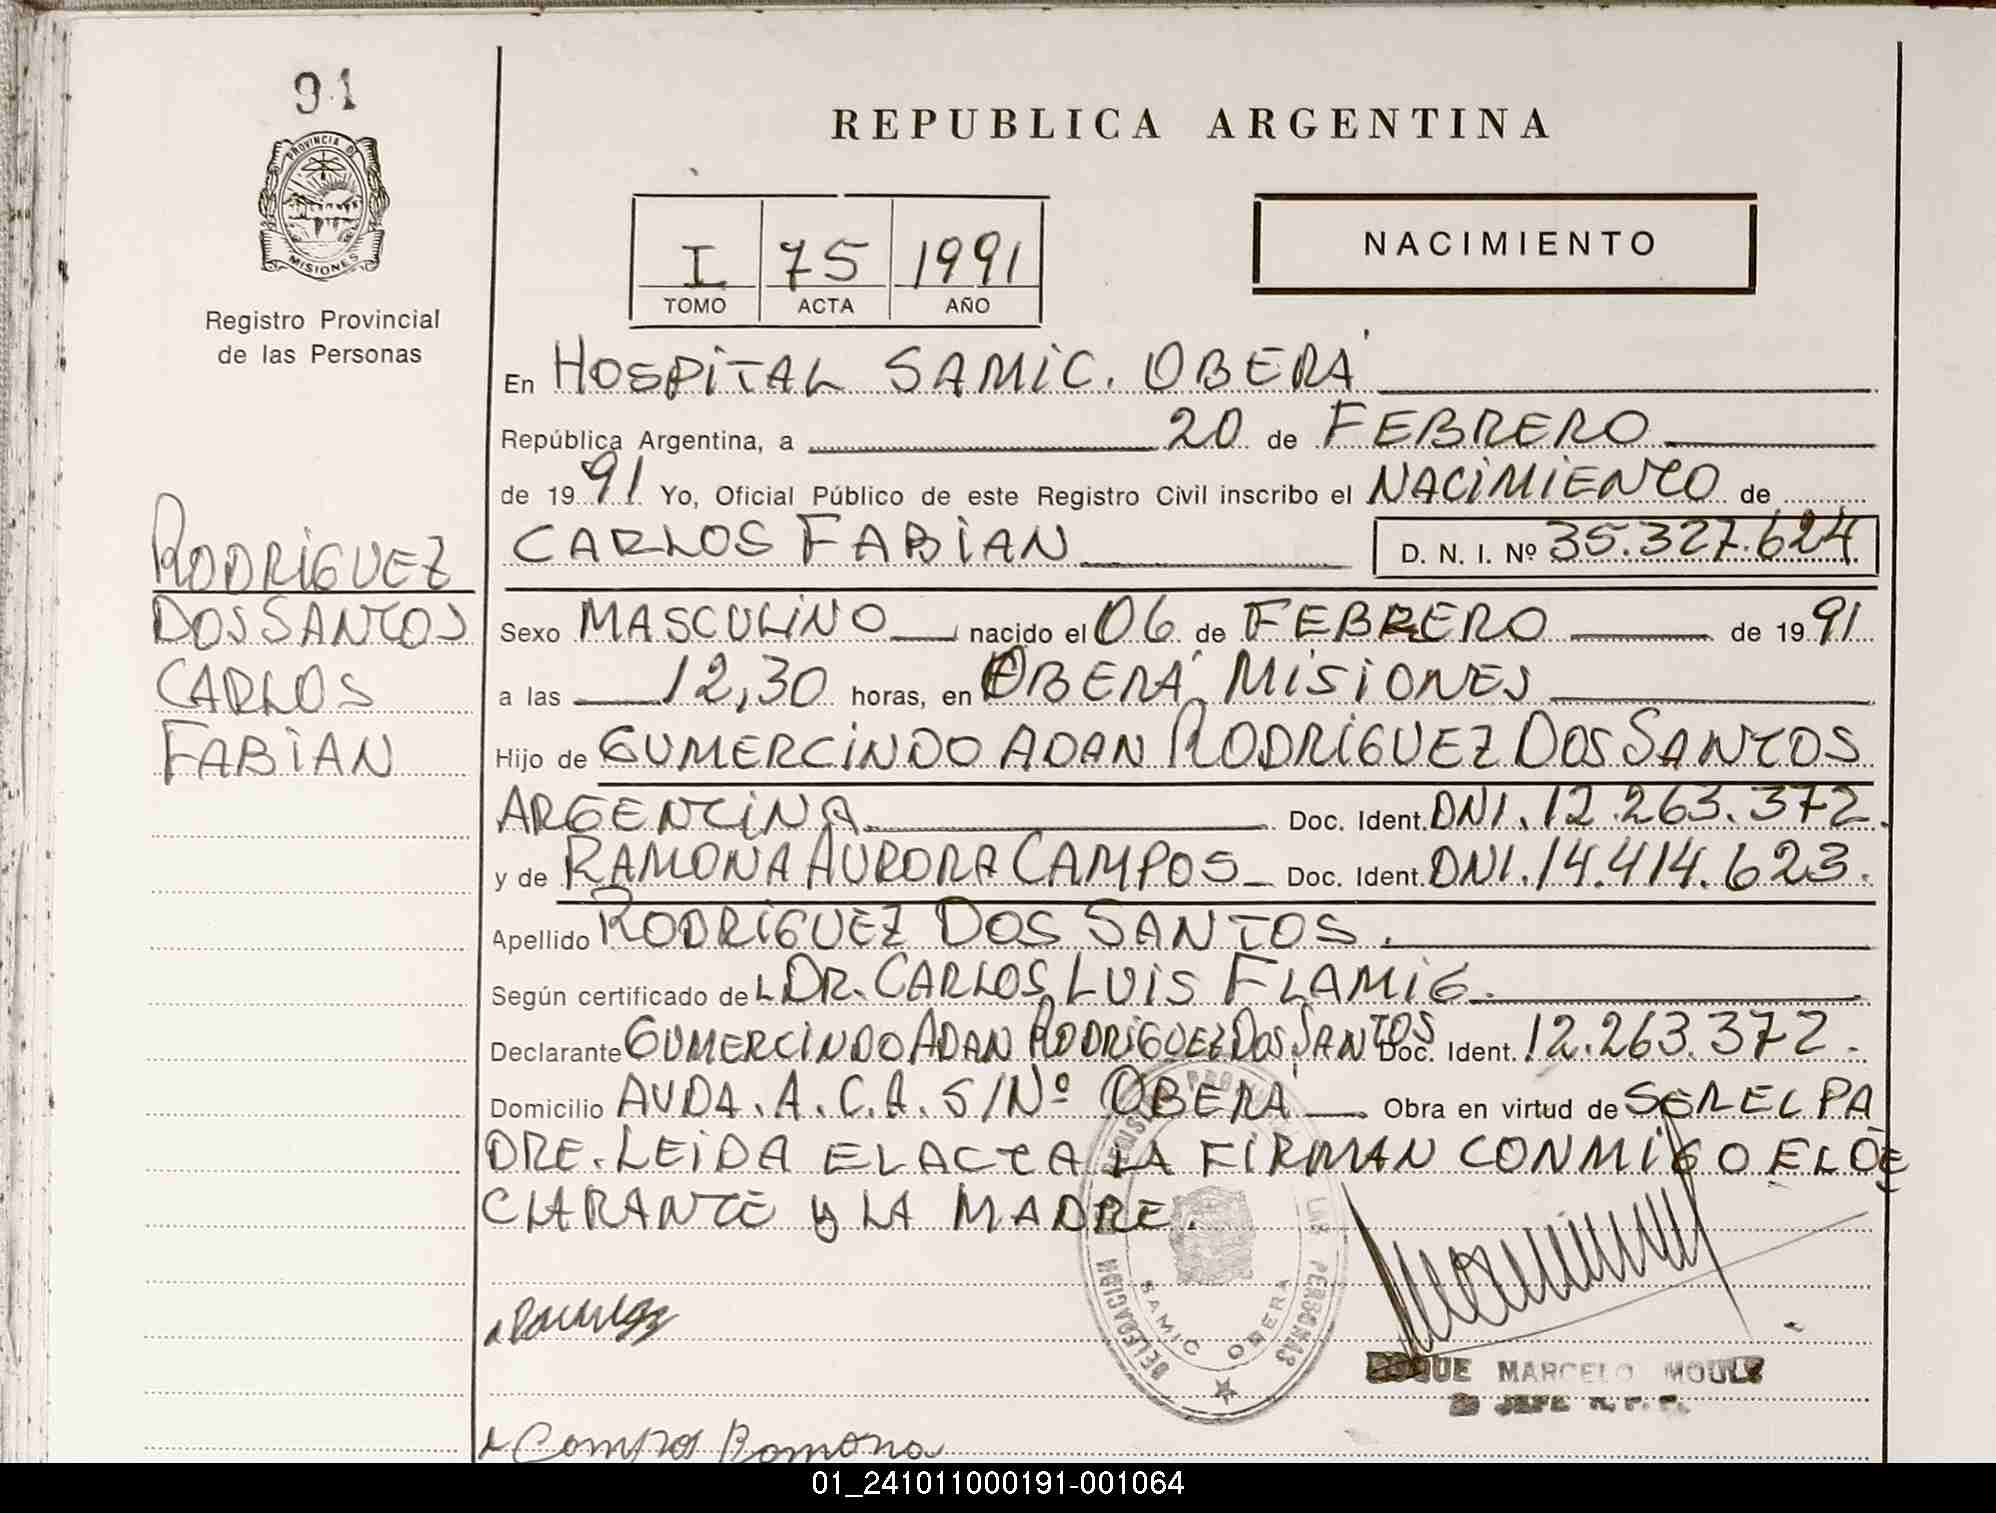 91
PROVINCIA DE
MISIONES
Registro Provincial
de las Personas
RODRIGUEZ
DOS SANTOS
CARLOS
FABIAN
REPUBLICA ARGENTINA
I 75 1991
TOMO ACTA AÑO
NACIMIENTO
En HOSPITAL SAMIC. OBERÁ
República Argentina, a 20 de FEBRERO
de 1991 Yo, Oficial Público de este Registro Civil inscribo el NACIMIENTO de
CARLOS FABIAN D. N. I. Nº 35.327.624
Sexo MASCULINO nacido el 06 de FEBRERO de 1991
a las 12,30 horas, en OBERÁ MISIONES
Hijo de GUMERCINDO ADAN RODRIGUEZ DOS SANTOS
ARGENTINA Doc. Ident. DNI. 12.263.372.
y de RAMONA AURORA CAMPOS Doc. Ident. DNI. 14.414.623.
Apellido RODRIGUEZ DOS SANTOS.
Según certificado de L DR. CARLOS LUIS FLAMIG.
Declarante GUMERCINDO ADAN RODRIGUEZ DOS SANTOS Doc. Ident. 12.263.372.
Domicilio AVDA. A.C.A. S/Nº OBERÁ Obra en virtud de SER EL PA
DRE. LEIDA EL ACTA LA FIRMAN CONMIGO EL DE
CLARANTE y LA MADRE.
DELEGACION
LAS PERSONAS
SAMIC OBERA
ROQUE MARCELO
JEFE R. P. P.
Campos Ramona
01_241011000191-001064